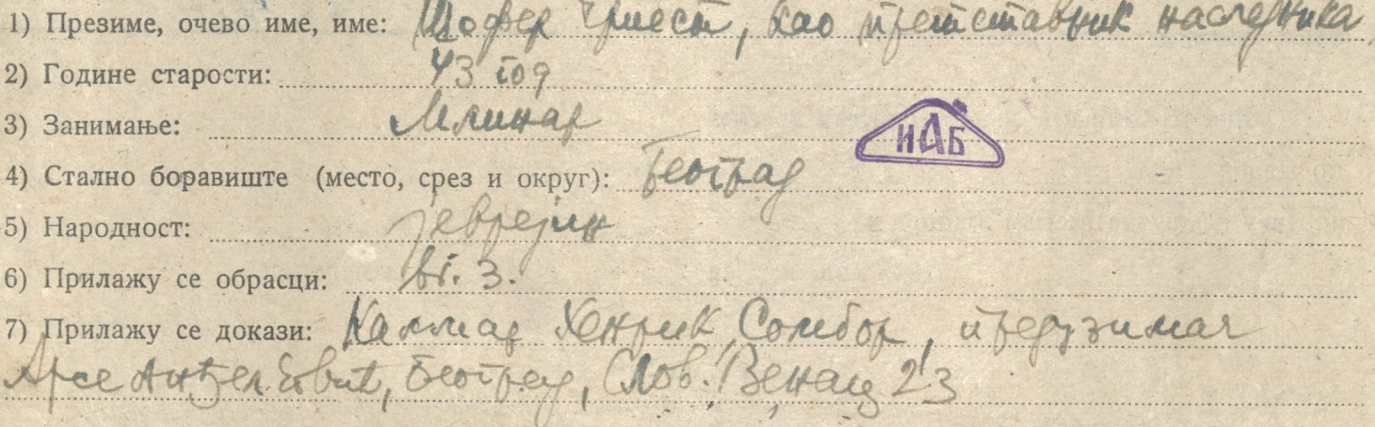 1) Презиме, очево име, име: Шофер Ернест, као претставник наследника
2) Године старости: 43 год
3) Занимање: Млинар
ИАБ
4) Стално боравиште (место, срез и округ): Београд
5) Народност: јеврејин
6) Прилажу се обрасци: 3.
7) Прилажу се докази: Калмар Хенрик, Сомбор, предузимач
Арсе Београд, Слов. Венац 23